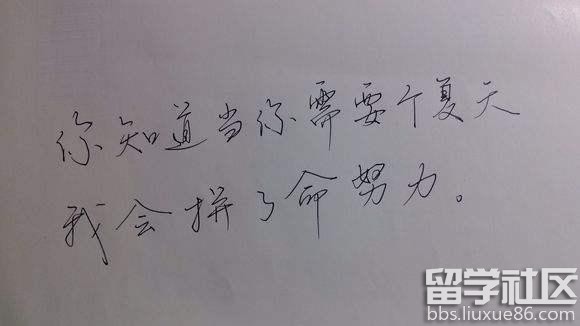 你知道当你需要个夏天
我会拼了命努力。
留学社区
bbs.liuxue86.com